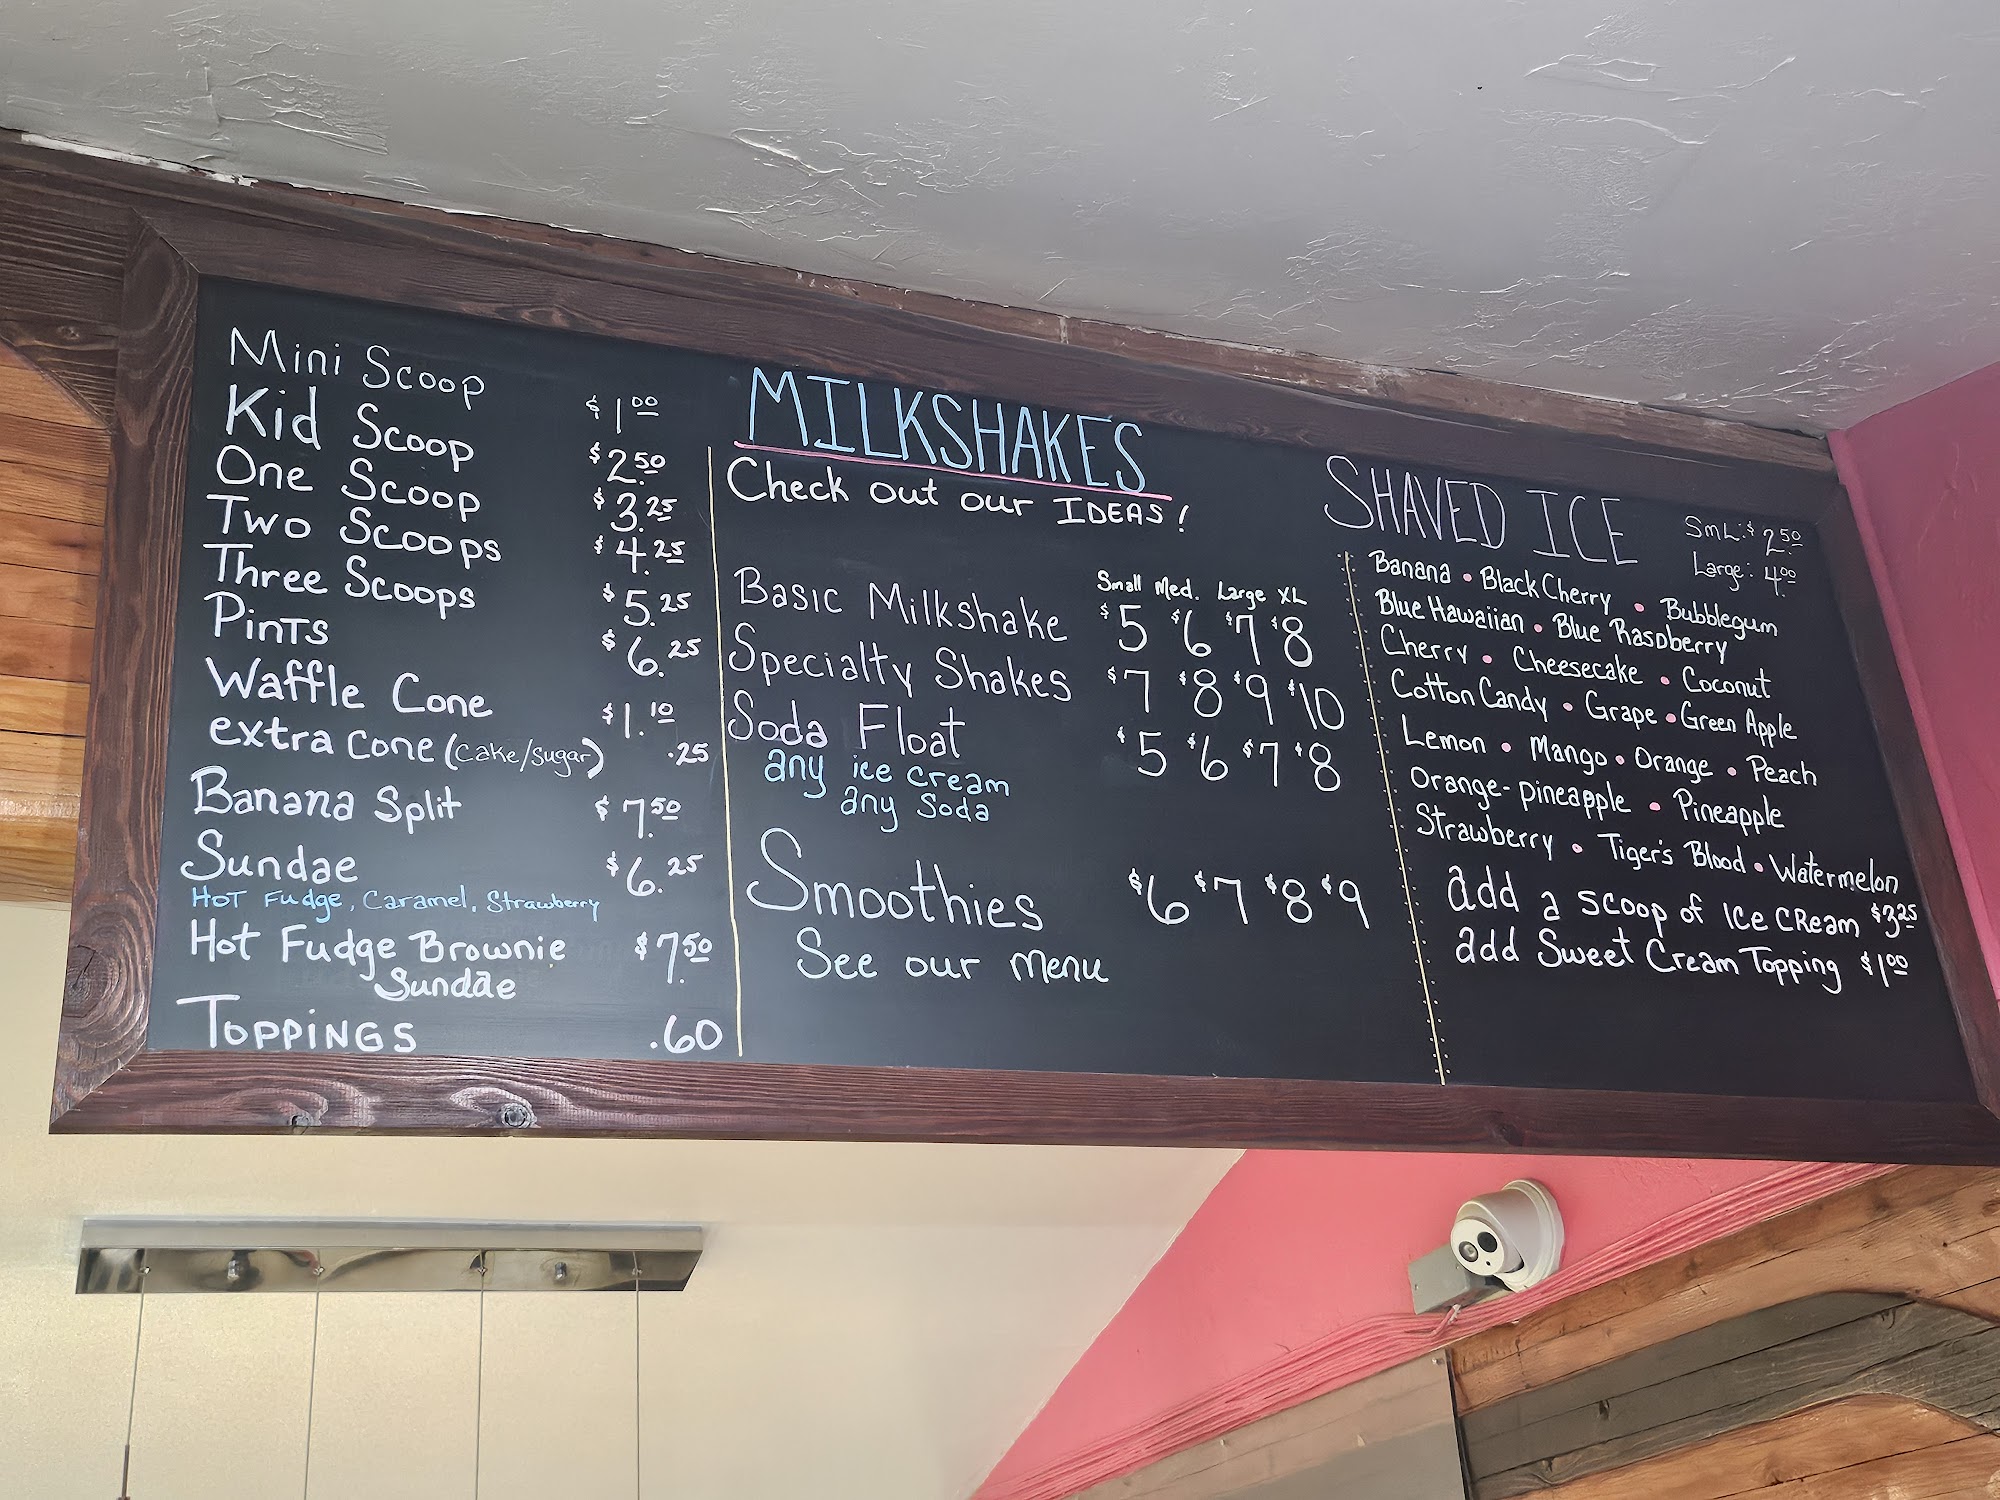 Mini Scoop $1.00
Kid Scoop $2.50
One Scoop $3.25
Two Scoops $4.25
Three Scoops $5.25
Pints $6.25
Waffle Cone $1.10
extra cone (cake/sugar) .25
Banana Split $7.50
Sundae $6.25
Hot Fudge, Caramel, Strawberry
Hot Fudge Brownie $7.50
Sundae
Toppings .60
MILKSHAKES
Check out our IDEAS!
Small Med. Large XL
Basic Milkshake $5 $6 $7 $8
Specialty Shakes $7 $8 $9 $10
Soda Float $5 $6 $7 $8
any ice cream
any Soda
Smoothies $6 $7 $8 $9
See our menu
SHAVED ICE
SmL: $2.50
Large: 4.00
Banana • Black Cherry • Bubblegum
Blue Hawaiian • Blue Raspberry
Cherry • Cheesecake • Coconut
Cotton Candy • Grape • Green Apple
Lemon • Mango • Orange • Peach
Orange-pineapple • Pineapple
Strawberry • Tiger's Blood • Watermelon
add a scoop of Ice Cream $3.25
add Sweet Cream Topping $1.00